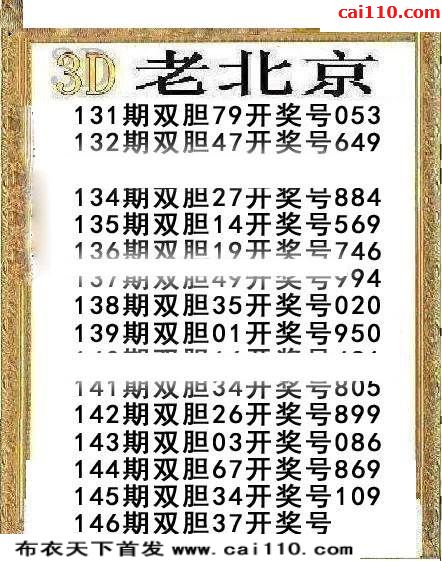 cai110.com
3D 老北京
131期双胆79开奖号053
132期双胆47开奖号649
134期双胆27开奖号884
135期双胆14开奖号569
136期双胆19开奖号746
137期双胆49开奖号994
138期双胆35开奖号020
139期双胆01开奖号950
141期双胆34开奖号805
142期双胆26开奖号899
143期双胆03开奖号086
144期双胆67开奖号869
145期双胆34开奖号109
146期双胆37开奖号
布衣天下首发 www.cai110.com